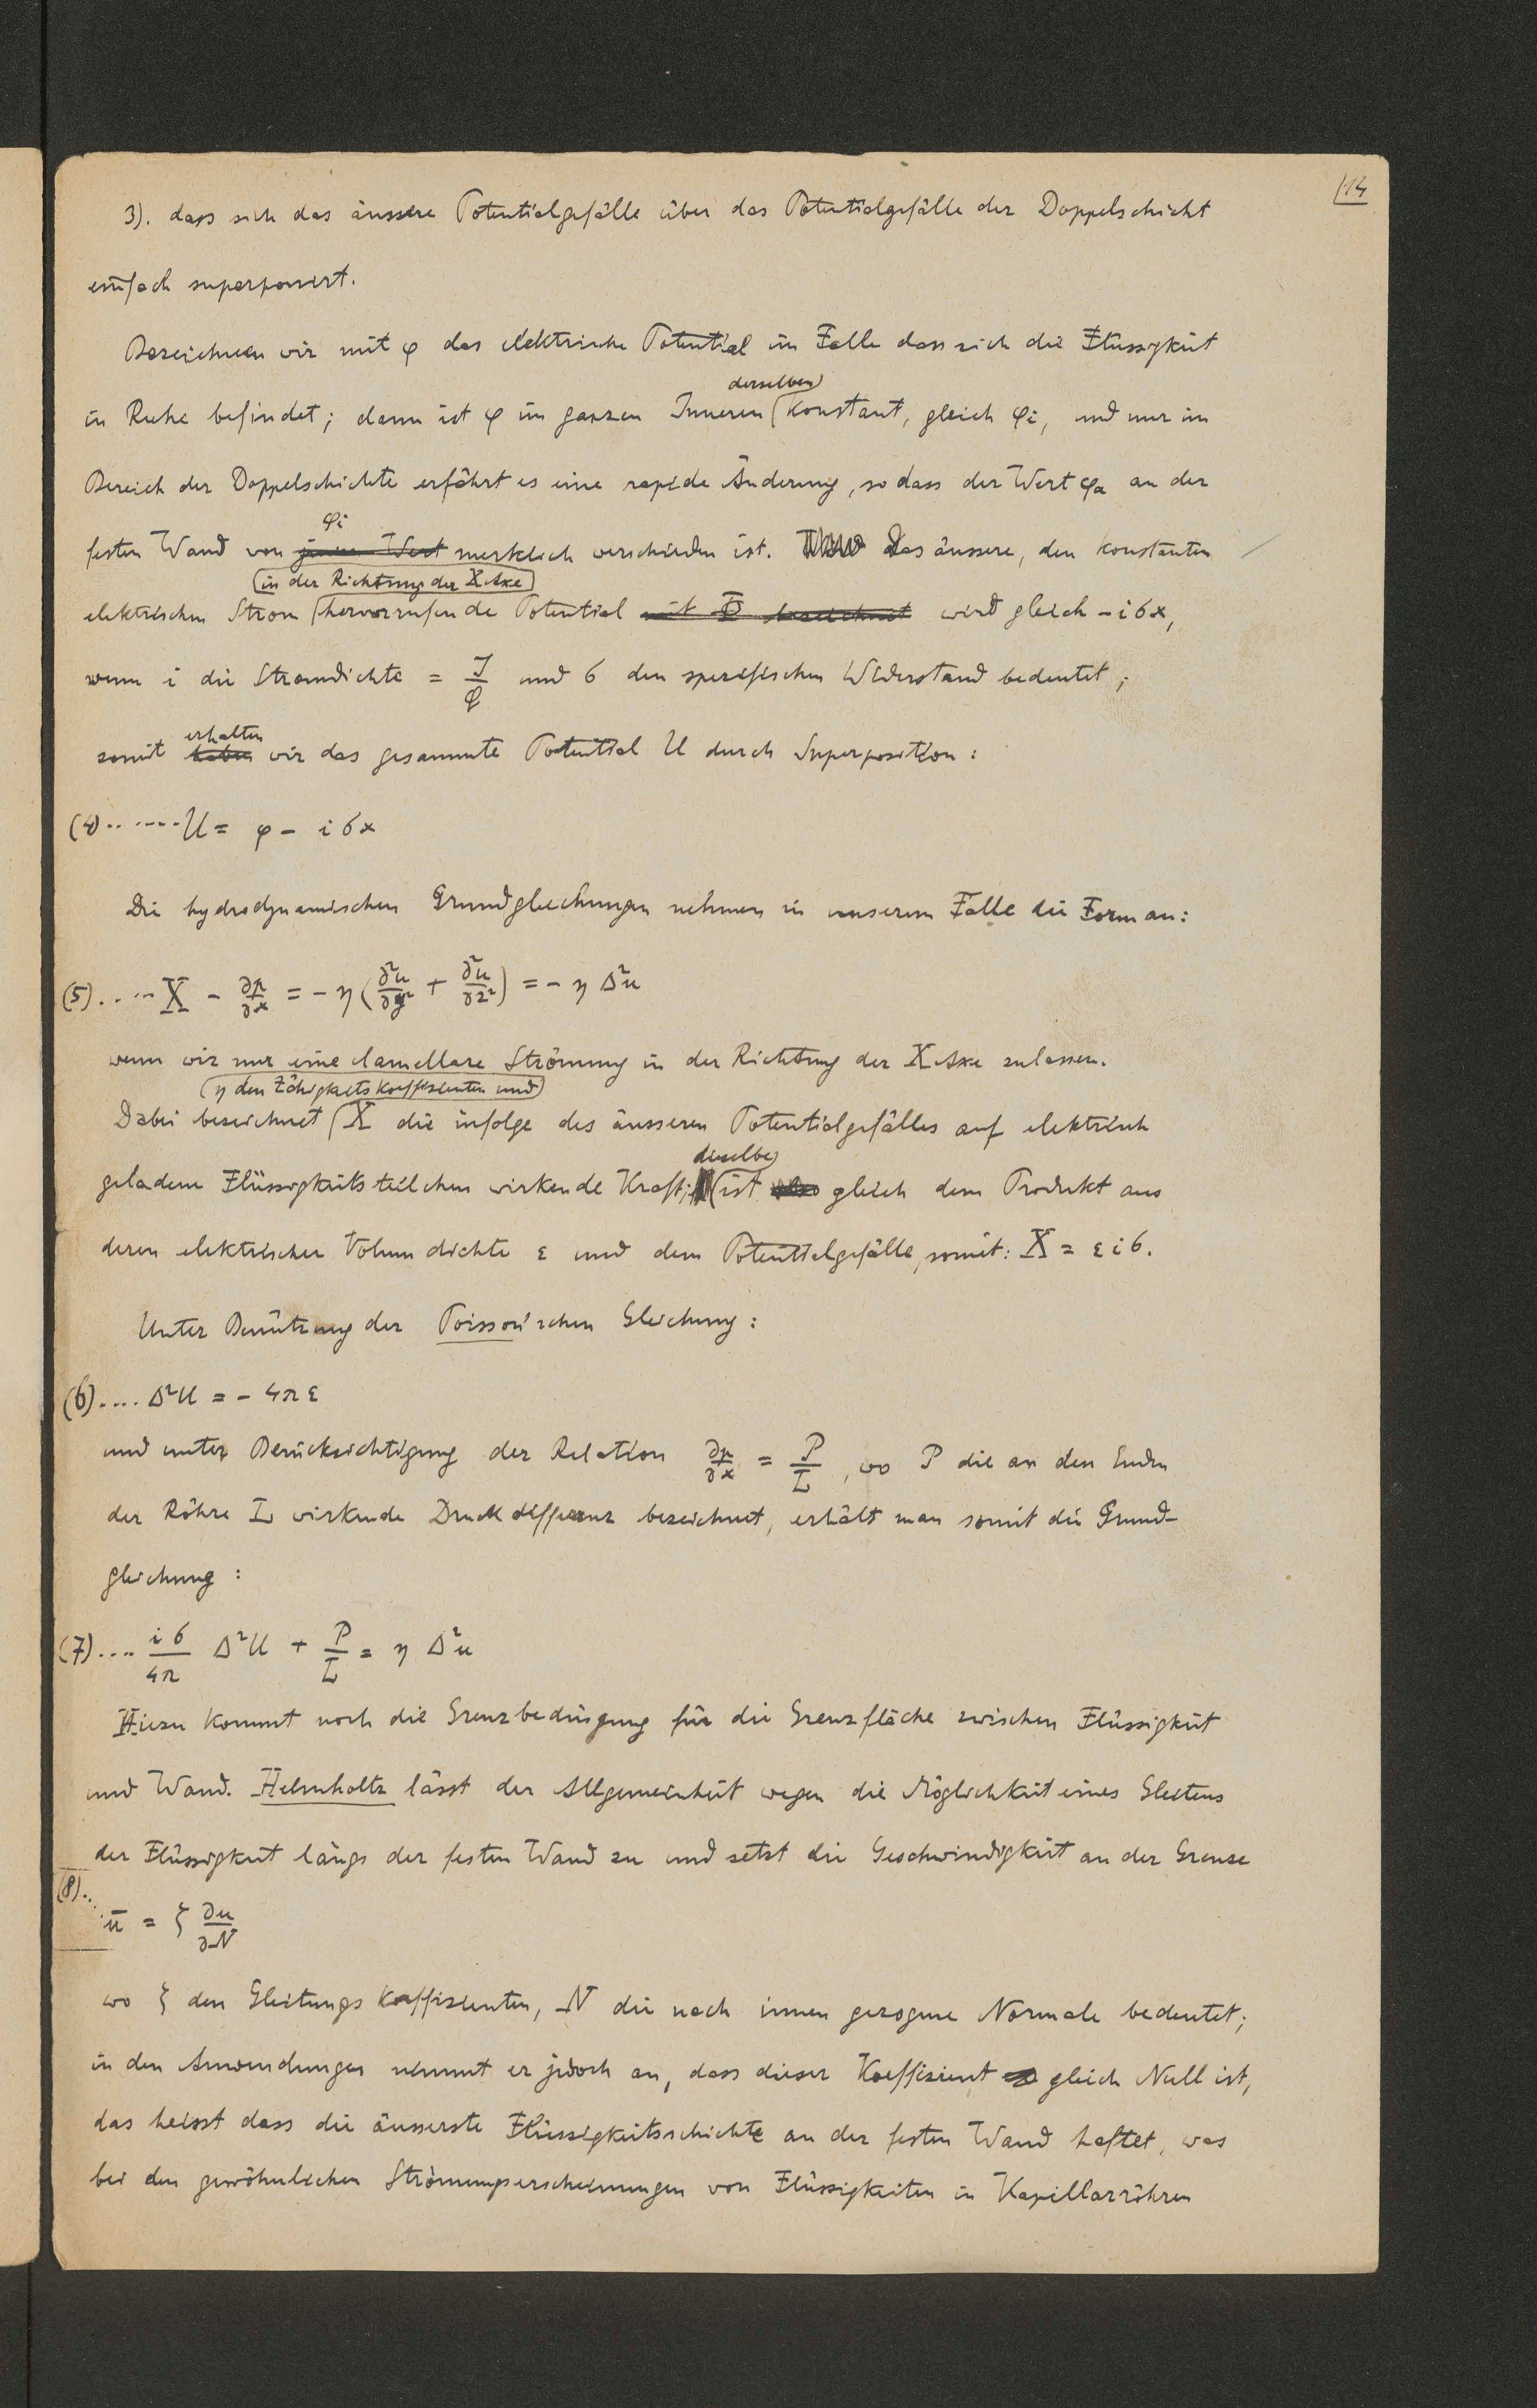 14
3). dass sich das äussere Potentialgefälle über das Potentialgefälle der Doppelschicht
einfach superponiert.
Bezeichnen wir mit φ das elektrische Potential im Falle dass sich die Flüssigkeit
derselben
in Ruhe befindet; dann ist φ im ganzen Inneren konstant, gleich φi, und nur im
Bereich der Doppelschichte erfährt es eine rapide Änderung, so dass der Wert φa an der
φi
festen Wand von jenem Wert merklich verschieden ist. Das äussere, den konstanten
in der Richtung der X Axe
elektrischen Strom hervorrufende Potential mit Φ bezeichnet wird gleich – iσx,
wenn i die Stromdichte = J/Q und σ den spezifischen Widerstand bedeutet;
erhalten
somit haben wir das gesammte Potential U durch Superposition:
(4) ...... U = φ – iσx
Die hydrodynamischen Grundgleichungen nehmen in unserem Falle die Form an:
(5) .... X – ∂p/∂x = – η (∂²u/∂y² + ∂²u/∂z²) = – η Δ²u
wenn wir nur eine lamellare Strömung in der Richtung der X Axe zulassen.
η den Zähigkeitskoeffizienten und
Dabei bezeichnet X die infolge des äusseren Potentialgefälles auf elektrisch
dieselbe
geladene Flüssigkeitsteilchen wirkende Kraft; ist also gleich dem Produkt aus
deren elektrischer Volumdichte ε und dem Potentialgefälle, somit: X = εiσ.
Unter Benützung der Poisson'schen Gleichung:
(6) .... Δ²U = – 4πε
und unter Berücksichtigung der Relation ∂p/∂x = P/L, wo P die an den Enden
der Röhre L wirkende Druckdifferenz bezeichnet, erhält man somit die Grund-
gleichung:
(7) .... iσ/4π Δ²U + P/L = η Δ²u
Hiezu kommt noch die Grenzbedingung für die Grenzfläche zwischen Flüssigkeit
und Wand. Helmholtz lässt der Allgemeinheit wegen die Möglichkeit eines Gleitens
der Flüssigkeit längs der festen Wand zu und setzt die Geschwindigkeit an der Grenze
(8) .. ū = ζ ∂u/∂N
wo ζ den Gleitungskoeffizienten, N die nach innen gezogene Normale bedeutet;
in den Anwendungen nimmt er jedoch an, dass dieser Koeffizient gleich Null ist,
das heisst dass die äusserste Flüssigkeitsschichte an der festen Wand haftet, was
bei den gewöhnlichen Strömungserscheinungen von Flüssigkeiten in Kapillarröhren